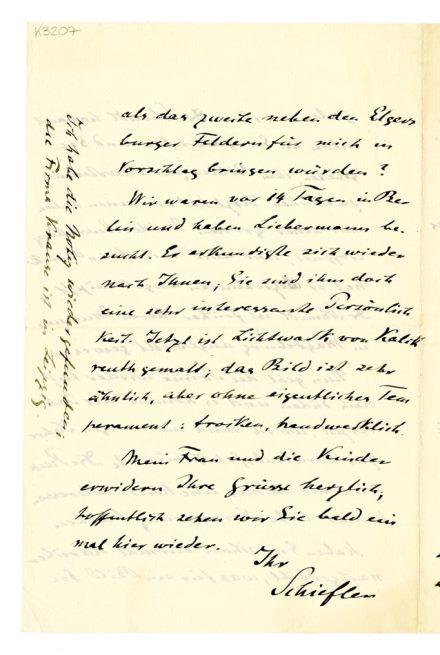 K3207
als das zweite neben den Elgers
burger Feldern für mich in
Vorschlag bringen würden?
Wir waren vor 14 Tagen in Ber
lin und haben Liebermann be
sucht. Er erkundigte sich wieder
nach Ihnen, Sie sind ihm doch
eine sehr interessante Persönlich
keit. Jetzt ist Lichtwark von Kalck
reuth gemalt; das Bild ist sehr
ähnlich, aber ohne eigentliches Tem
perament: trocken, handwerklich.
Meine Frau und die Kinder
erwidern Ihre Grüsse herzlich;
hoffentlich sehen wir Sie bald ein
mal hier wieder.
Ihr
Schiefler
Ich habe die Notiz wiedergefunden:
die Firma Krause ist in Leipzig.